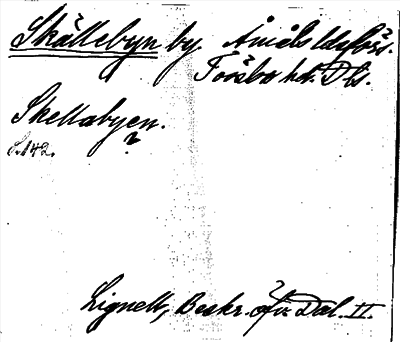 Skällebyn by. Åmåls ldsförs.
Tössbo hd. Dls.
Skellabyen.
S. 142. ?
Lignell, Beskr. öfv. Dal. II.